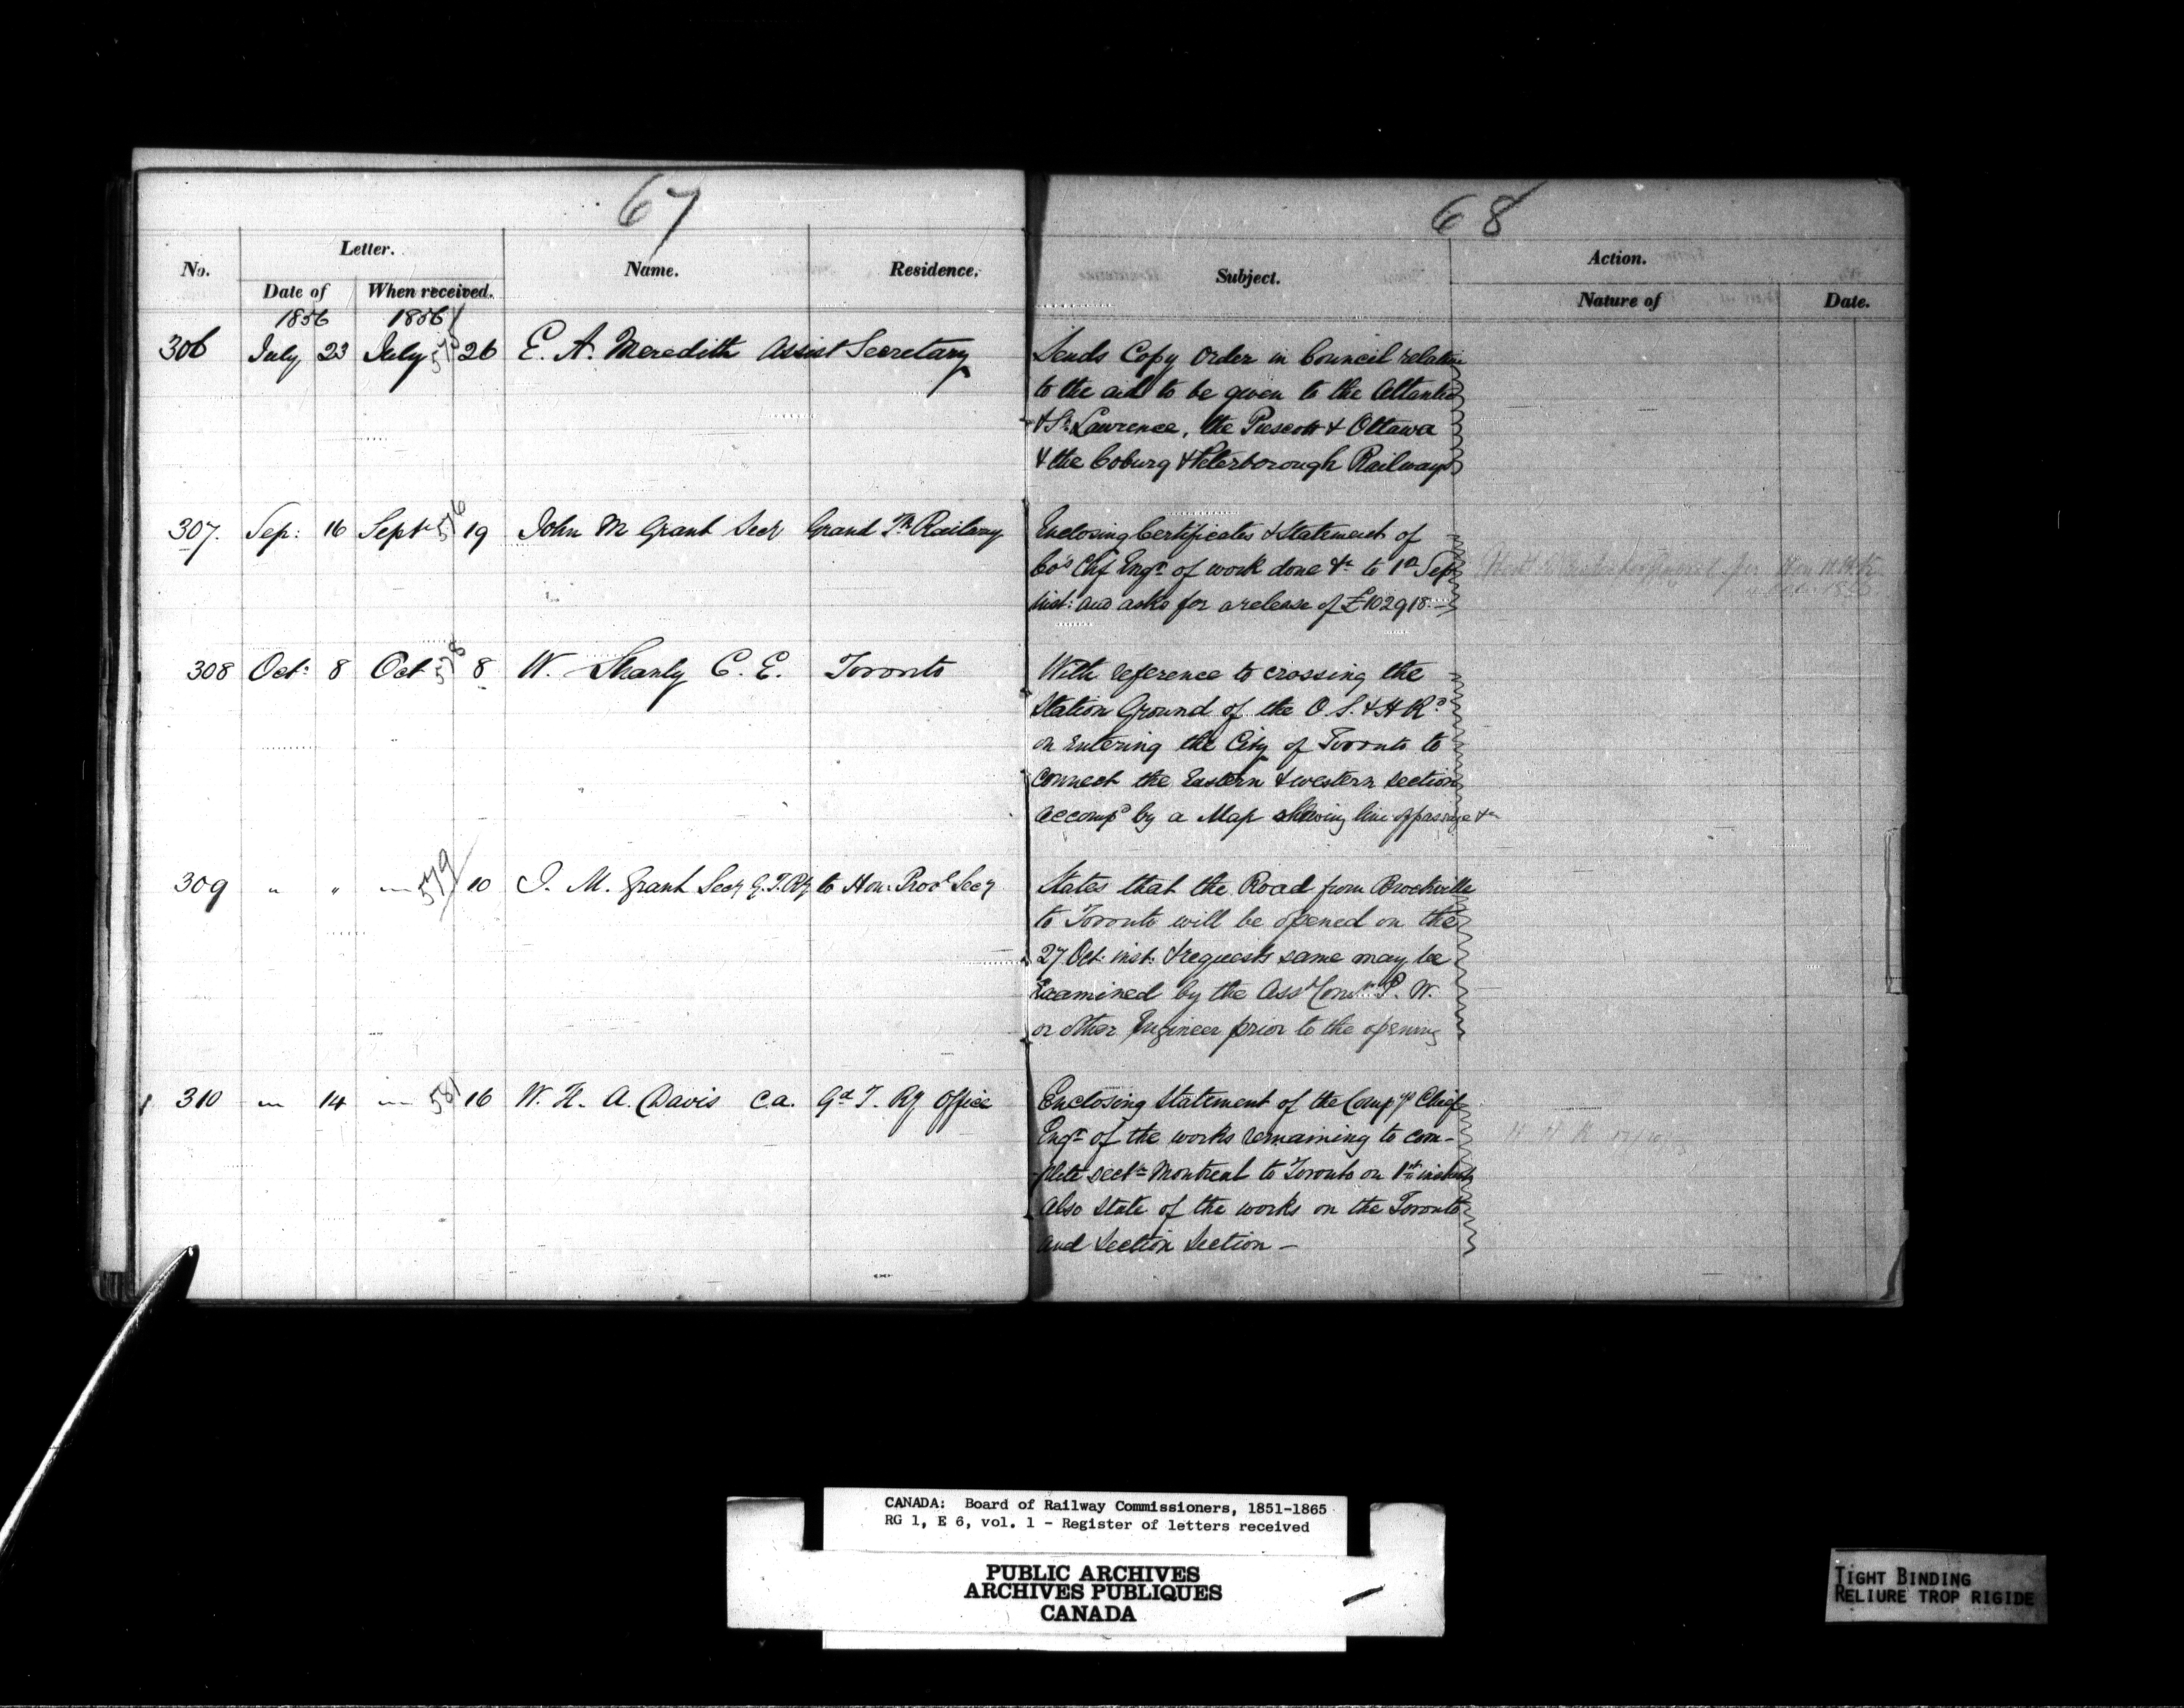 67
No.
Letter.
Name.
Residence.
Date of
When received.
1856
1856
306 July 23 July 575 26 E. A. Meredith Assist Secretary
307. Sep: 16 Septr 576 19 John M Grant Secy Grand Tk Railway
308 Oct: 8 Oct 578 8 W. Shanly C. E. Toronto
309 " " " 579 10 J. M. Grant Secy G. T. Ry to Hon: Provl Secy
310 " 14 " 581 16 W. H. A. Davis C.A. Gd T. Ry Office
68
Subject.
Action.
Nature of
Date.
Sends Copy Order in Council relative
to the aid to be given to the Atlantic
& St Lawrence, the Prescott & Ottawa
& the Coburg & Peterborough Railways
Enclosing Certificates & Statement of
Co's Chf Engr of work done &c to 1st Sep
inst: and asks for a release of £102918.-
With reference to crossing the
Station Ground of the O. S. & H Rd
on entering the City of Toronto to
connect the Eastern & western section
accompd by a Map showing line of passage &c
States that the Road from Brockville
to Toronto will be opened on the
27 Oct: inst: & requests same may be
Examined by the Asst Comr P. W.
or other Engineer prior to the opening
Enclosing Statement of the Comp'ys Chief
Engr of the works remaining to com-
plete sectn Montreal to Toronto on 1st instant
Also State of the works on the Toronto
and Section Section -
CANADA: Board of Railway Commissioners, 1851-1865
RG 1, E 6, vol. 1 - Register of letters received
PUBLIC ARCHIVES
ARCHIVES PUBLIQUES
CANADA
TIGHT BINDING
RELIURE TROP RIGIDE